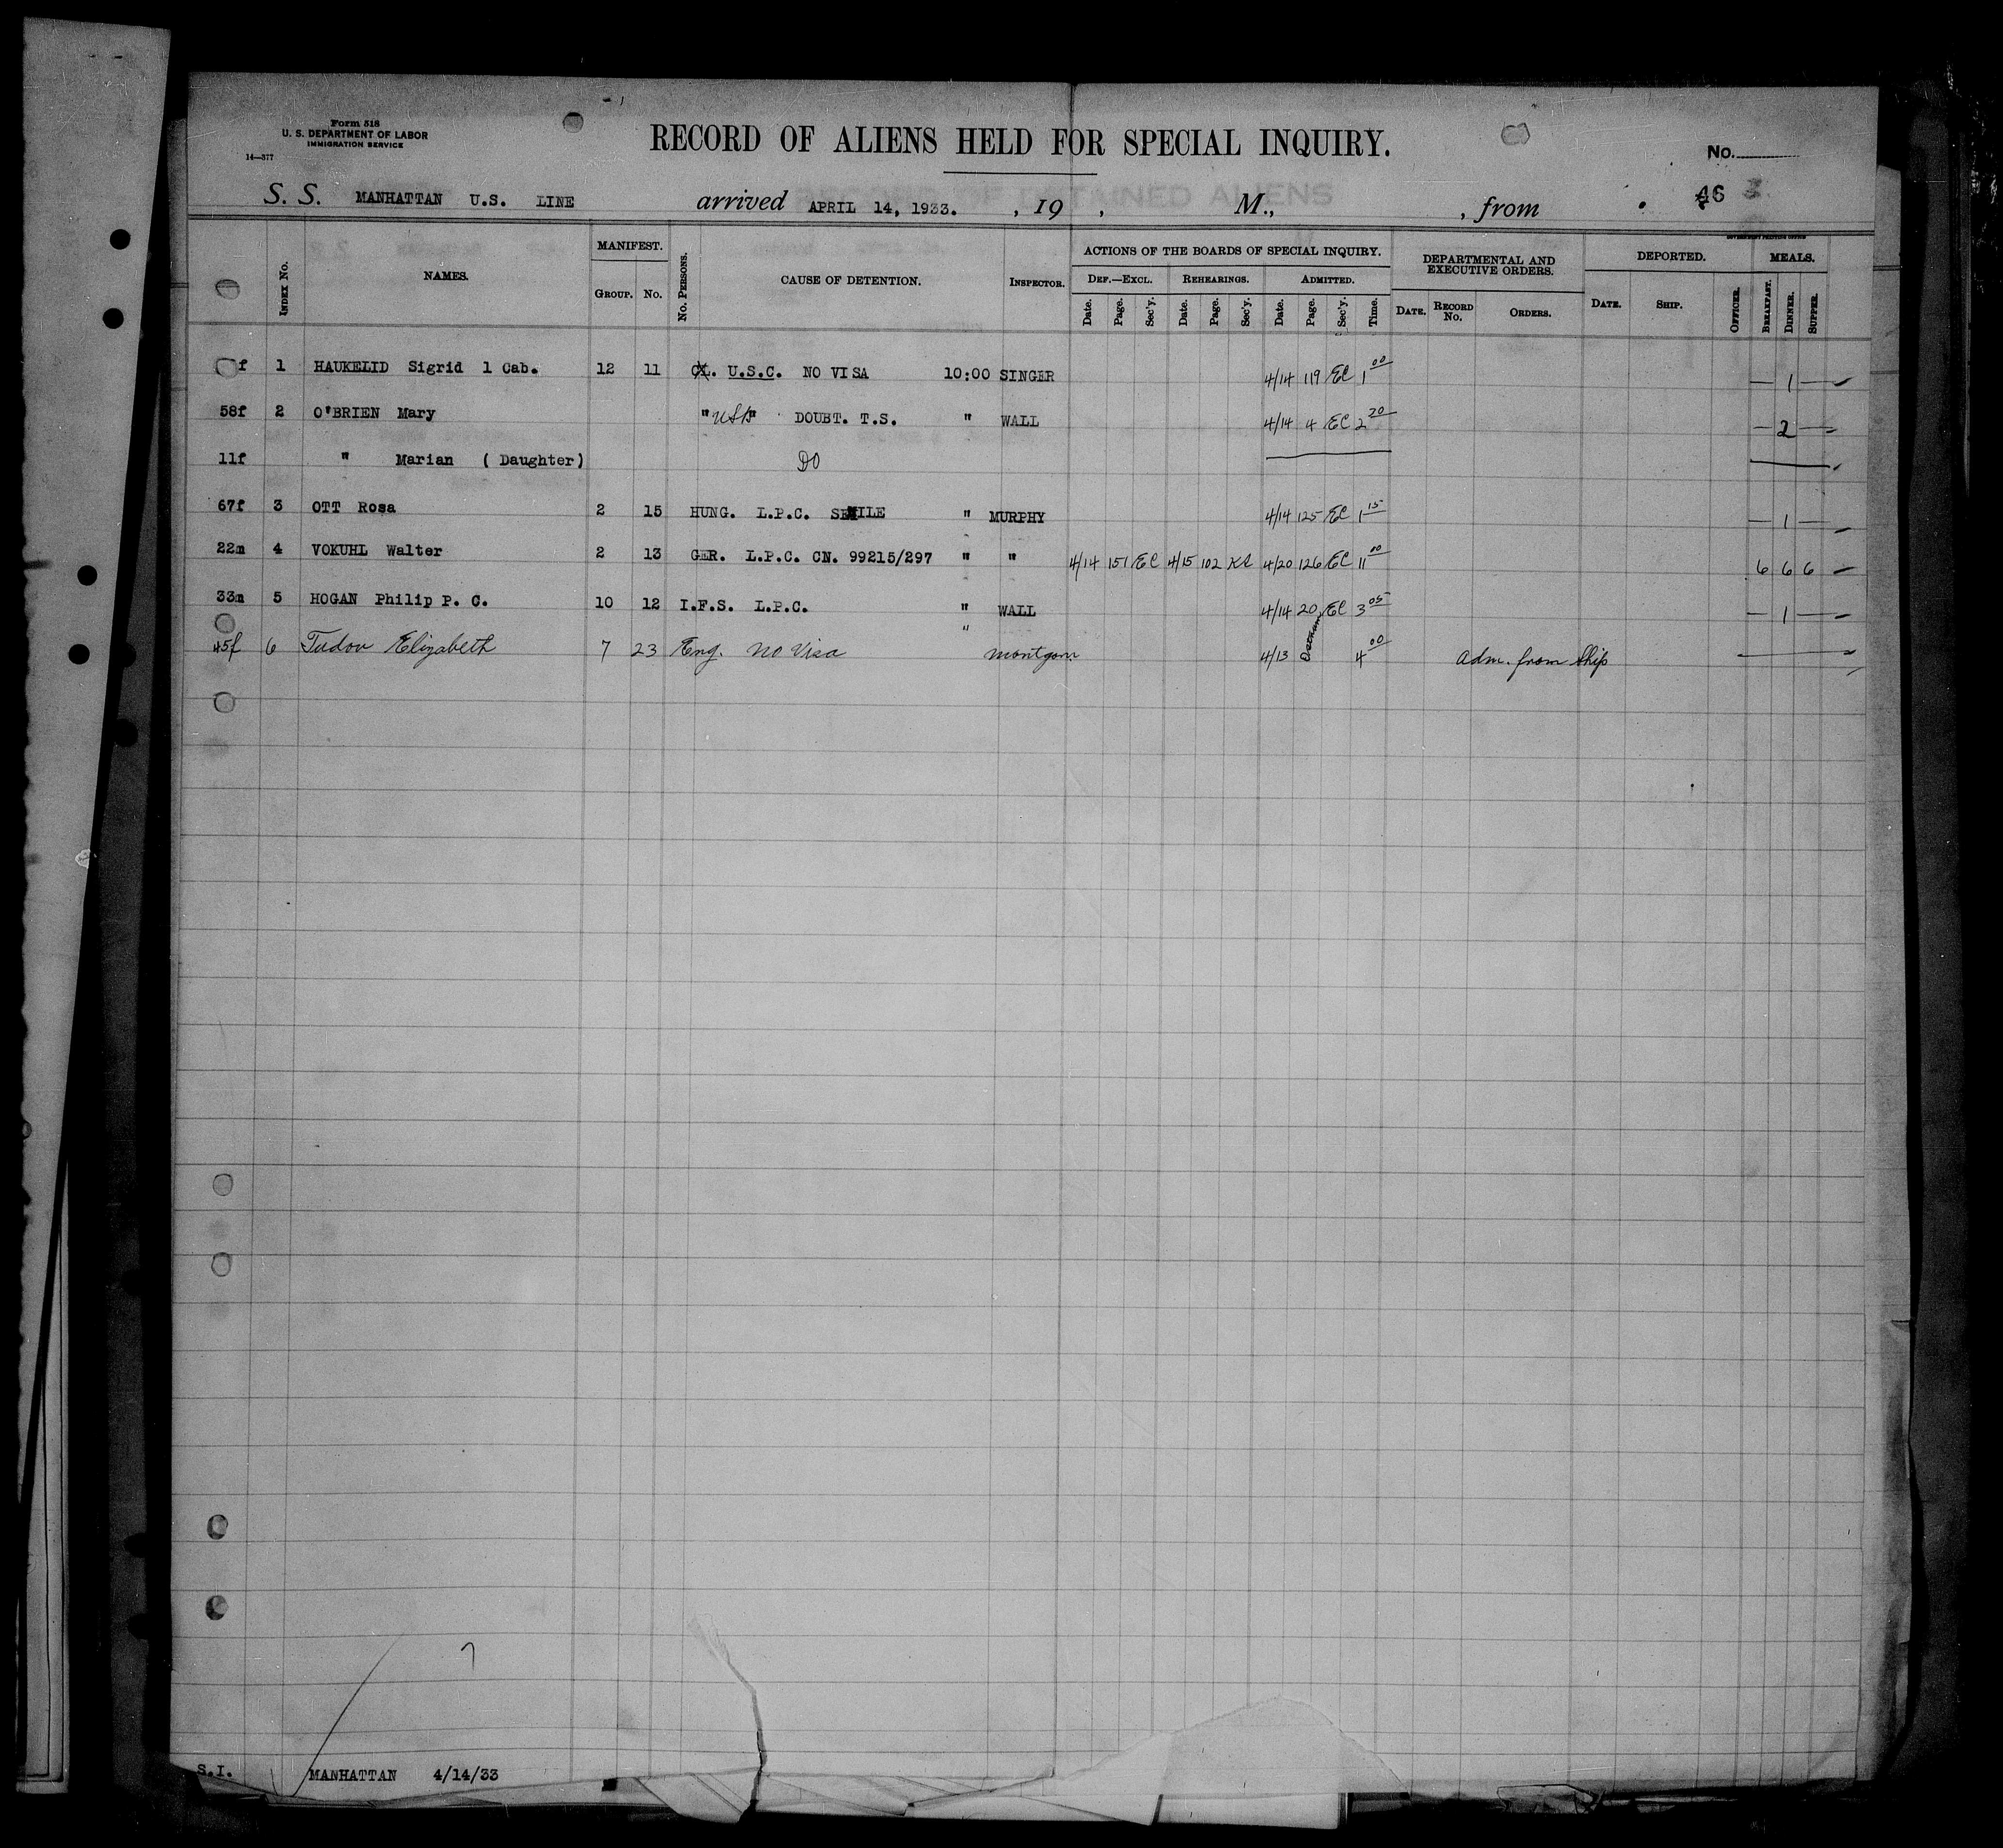 Form 518
U. S. DEPARTMENT OF LABOR
IMMIGRATION SERVICE
14—377
RECORD OF ALIENS HELD FOR SPECIAL INQUIRY.
No.
S. S. MANHATTAN U.S. LINE arrived APRIL 14, 1933. , 19 , M., , from . 46 3
GOVERNMENT PRINTING OFFICE
INDEX No. NAMES. MANIFEST. GROUP. No. No. PERSONS. CAUSE OF DETENTION. INSPECTOR. ACTIONS OF THE BOARDS OF SPECIAL INQUIRY. DEF.—EXCL. Date. Page. Sec'y. REHEARINGS. Date. Page. Sec'y. ADMITTED. Date. Page. Sec'y. Time. DEPARTMENTAL AND EXECUTIVE ORDERS. DATE. RECORD No. ORDERS. DEPORTED. DATE. SHIP. OFFICER. MEALS. BREAKFAST. DINNER. SUPPER.
f 1 HAUKELID Sigrid 1 Cab. 12 11 U.S.C. NO VISA 10:00 SINGER 4/14 119 EC 1 00 — 1 —
58f 2 O'BRIEN Mary " " DOUBT. T.S. " WALL 4/14 4 EC 2 20 — 2 —
11f " Marian ( Daughter) DO
67f 3 OTT Rosa 2 15 HUNG. L.P.C. SENILE " MURPHY 4/14 125 EC 1 15 — 1 —
22m 4 VOKUHL Walter 2 13 GER. L.P.C. CN. 99215/297 " " 4/14 151 EC 4/15 102 KS 4/20 126 EC 11 00 6 6 6 —
33m 5 HOGAN Philip P. C. 10 12 I.F.S. L.P.C. " WALL 4/14 20 EC 3 05 — 1 —
45f 6 Tudor Elizabeth 7 23 Eng. No Visa " Montgom 4/13 4 00 Adm. from Ship
7
S.I. MANHATTAN 4/14/33